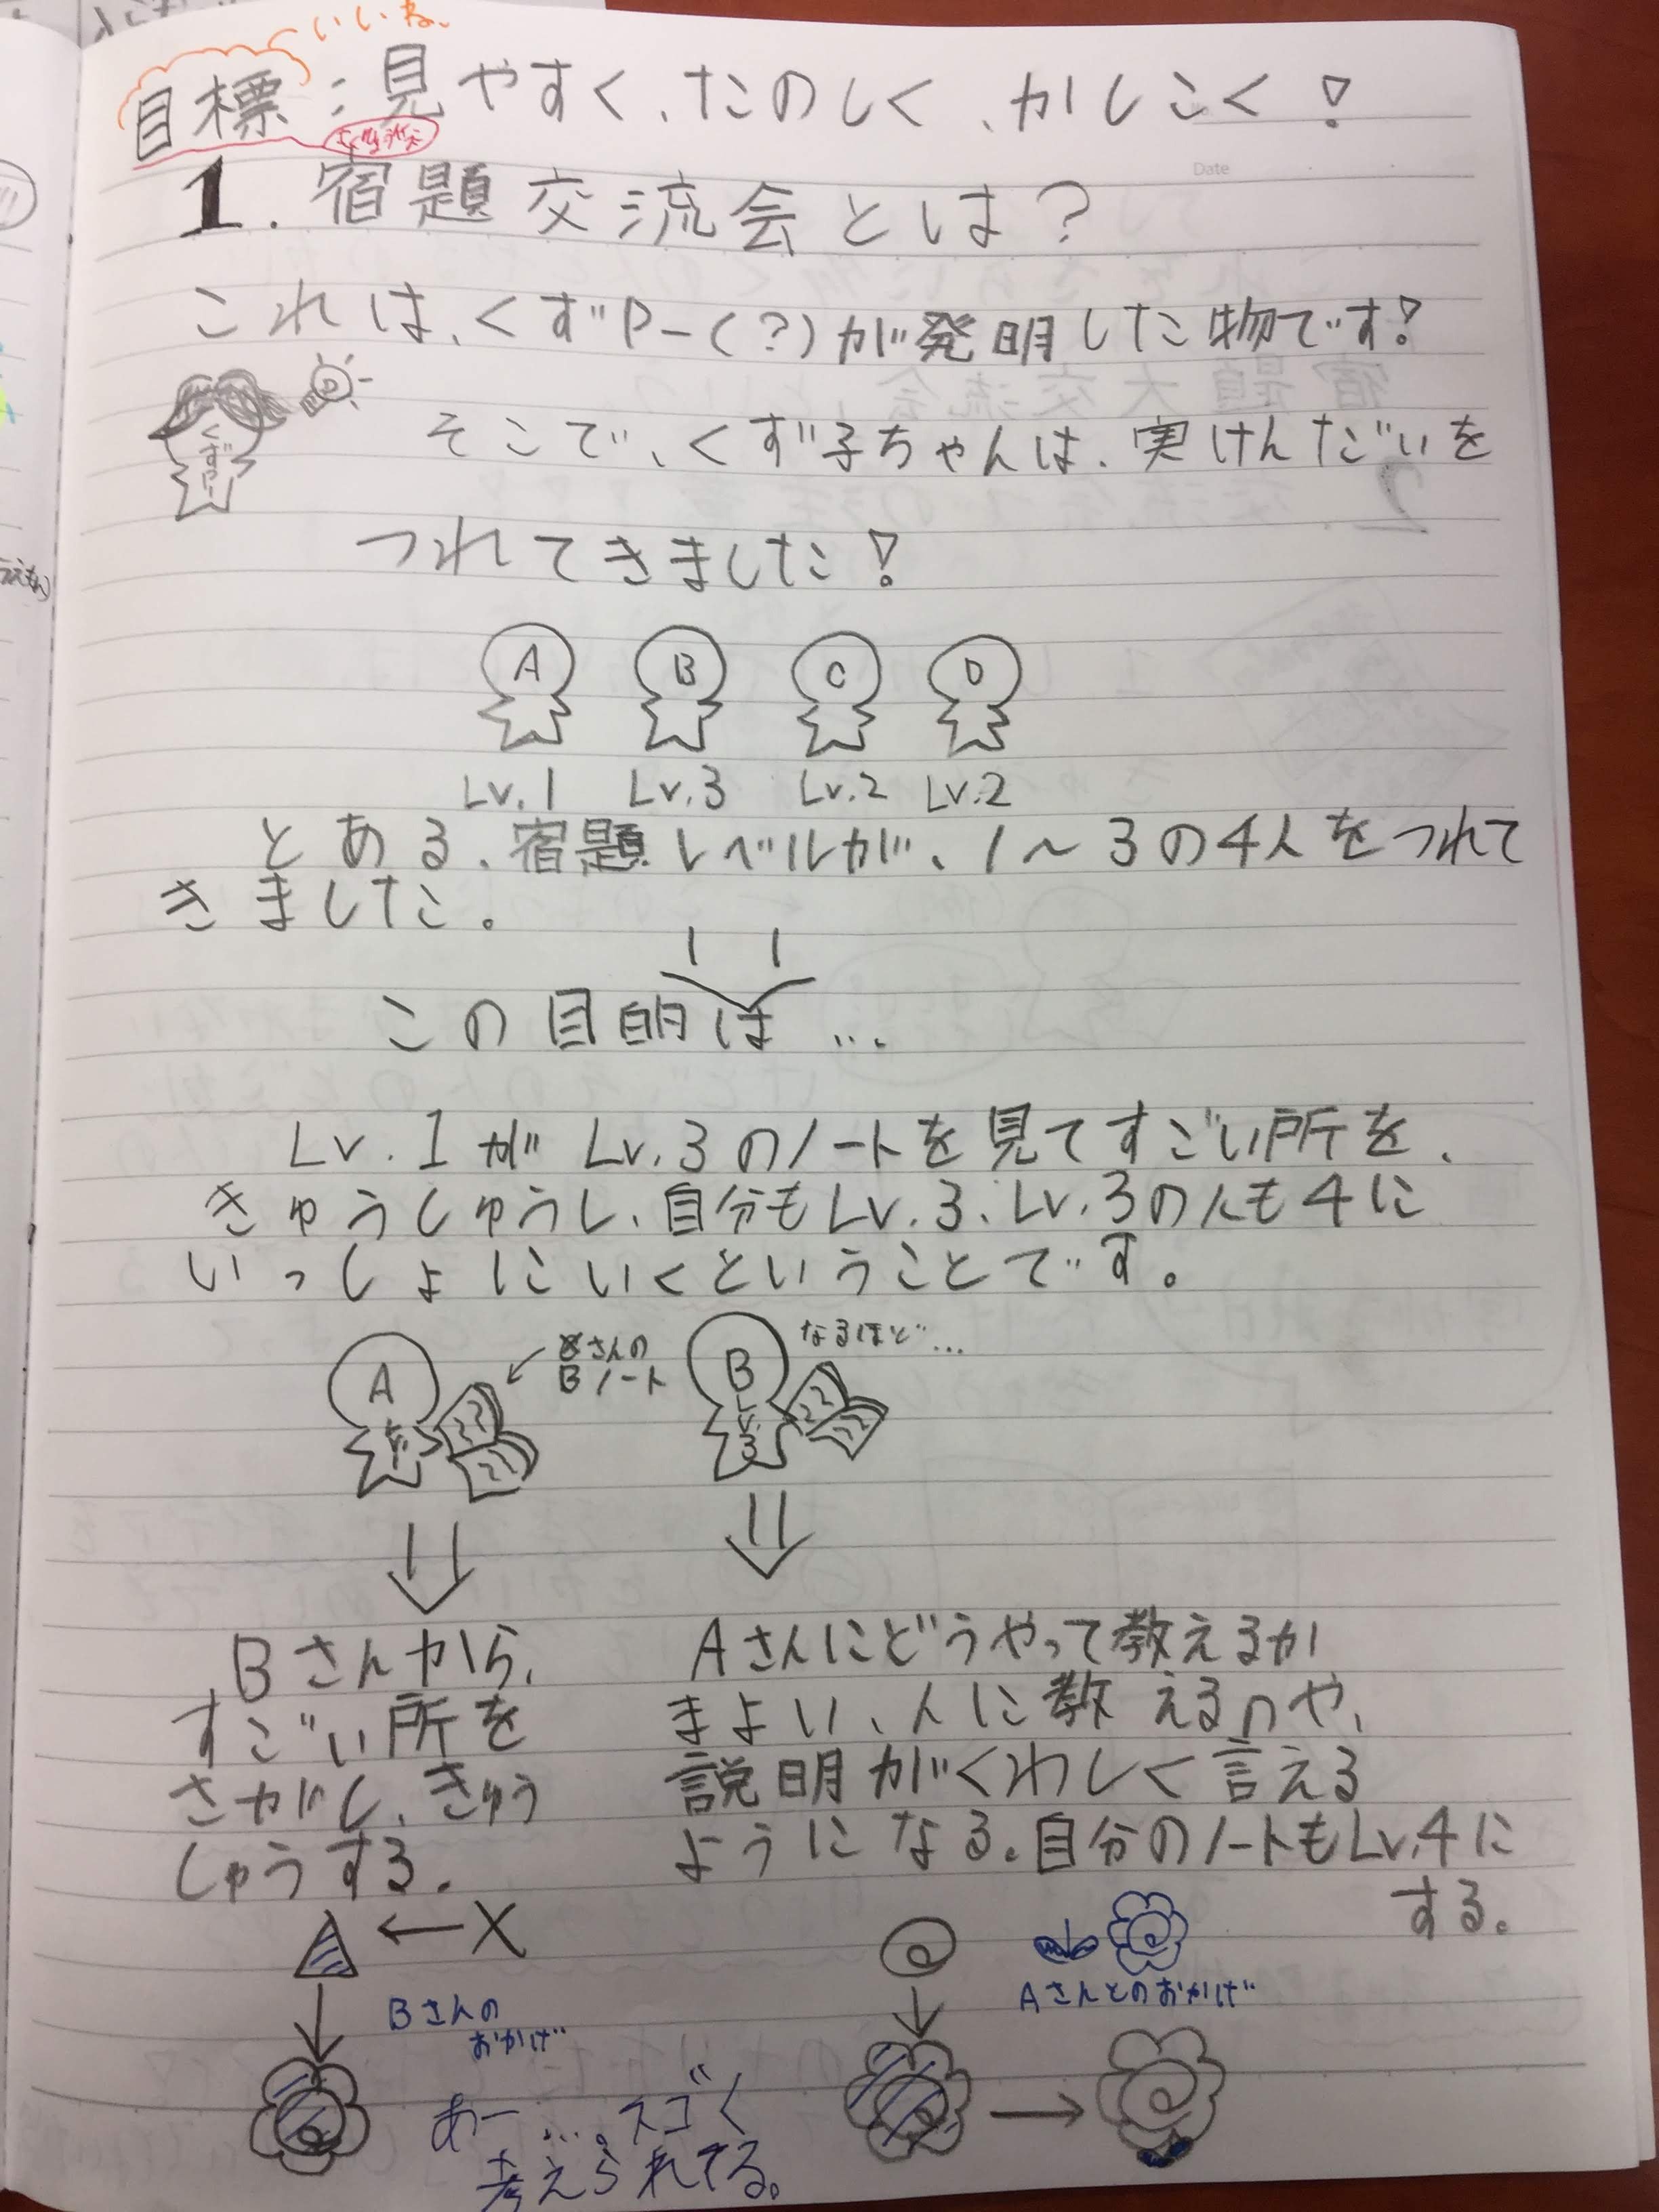 いいね。
目標:見やすく、たのしく、かしこく!
Date
1. 宿題交流会とは?
これは、くずP-(?)が発明した物です!
くずPー
そこで、くず子ちゃんは、実けんだいを
つれてきました!
A B C D
Lv.1 Lv.3 Lv.2 Lv.2
とある、宿題レベルが、1〜3の4人をつれて
きました。
この目的は…
Lv.1がLv.3のノートを見てすごい所を、
きゅうしゅうし、自分もLv.3、Lv.3の人も4に
いっしょにいくということです。
A
Lv.1
さんの
Bノート
B
Lv.3
なるほど…
Bさんから、
すごい所を
さがし、きゅう
しゅうする。
Aさんにどうやって教えるか
まよい、人に教えるのや、
説明がくわしく言える
ようになる。自分のノートもLv.4に
する。
Bさんの
おかげ
Aさんとのおかげ
あー…。スゴく
考えられてる。